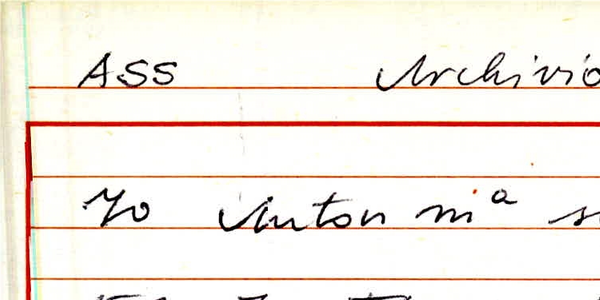 ASS Archivio
Yo Anton mª